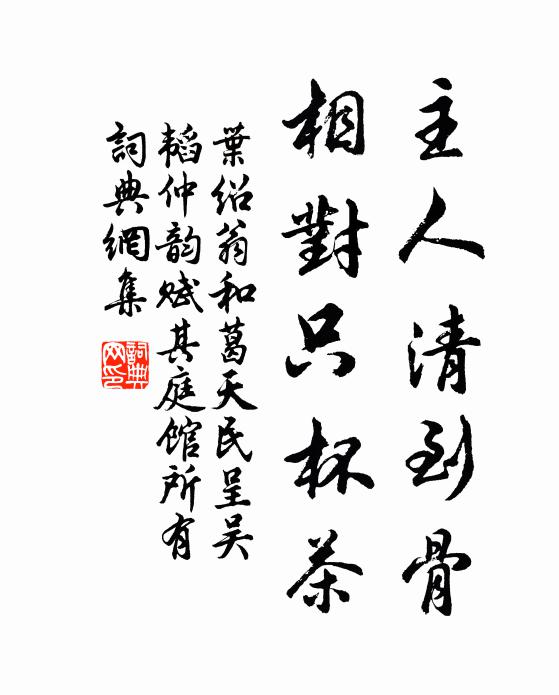 主人清到骨
相對只杯茶
葉紹翁和葛天民呈吳
韜仲韵賦其庭館所有
詞典網集
詞典
网印